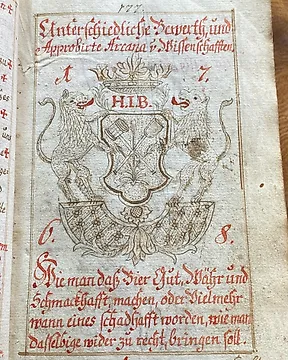 177.
Unterschiedliche Bewerth, und
Approbirte Arcana v Wissenschafften
1. 7.
H.I.B.
6. 8.
Wie man daß Bier Gut, Währ und
Schmackhafft, machen, oder Vielmehr
wann eines schadhafft worden, wie man
dasselbige wider zu recht, bringen soll.